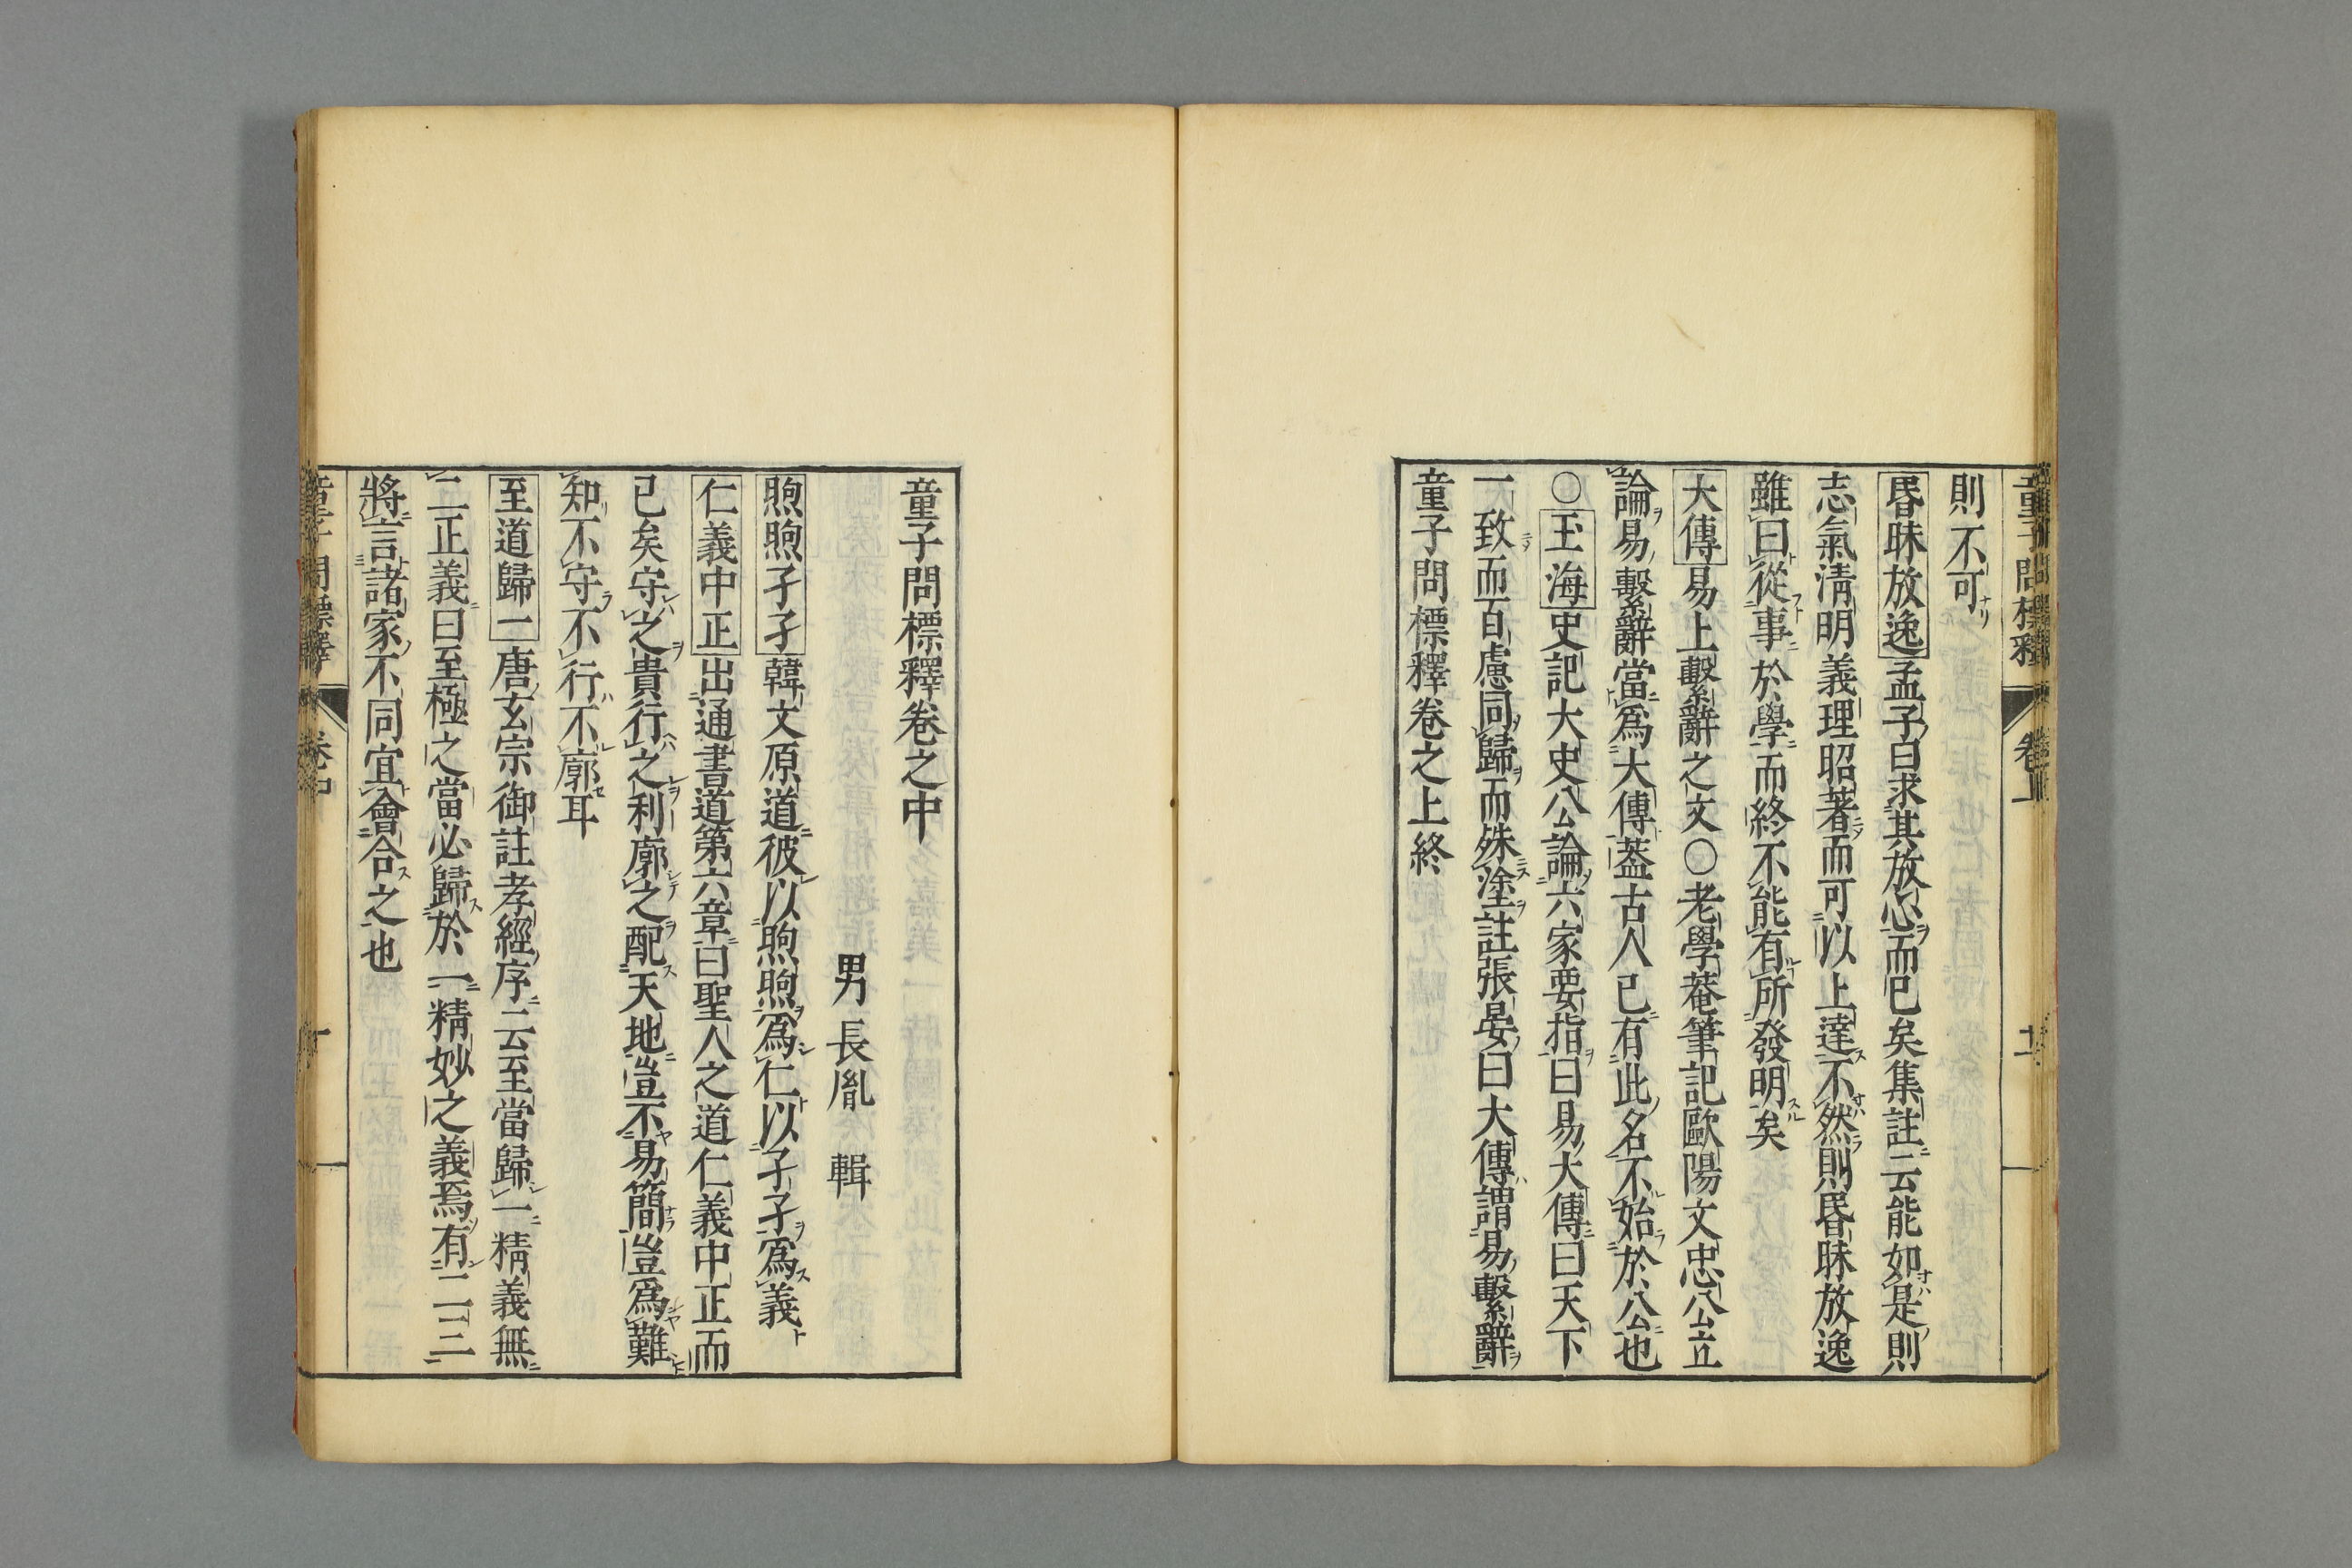 則不可
昬昧放逸孟子曰求其放心而已矣集註云能如是則
志氣清明義理昭著而可以上達不然則昬昧放逸
雖曰從事於學而終不能有所發明矣
大傳易上繫辭之文〇老學菴筆記歐陽文忠公立
論易繫辭當爲大傳蓋古人已有此名不始於公也
〇玉海史記大史公論六家要指曰易大傳曰天下
一致而百慮同歸而殊塗註張晏曰大傳謂易繫辭
童子問標釋卷之上終
童子問標釋卷之中
男 長胤 輯
煦煦孑孑韓文原道彼以煦煦爲仁以孑孑爲義
仁義中正出通書道第六章曰聖人之道仁義中正而
已矣守之貴行之利廓之配天地豈不易簡豈爲難
知不守不行不廓耳
至道歸一唐玄宗御註孝經序云至當歸一精義無
二正義曰至極之當必歸於一精妙之義焉有二三
將言諸家不同宜會合之也